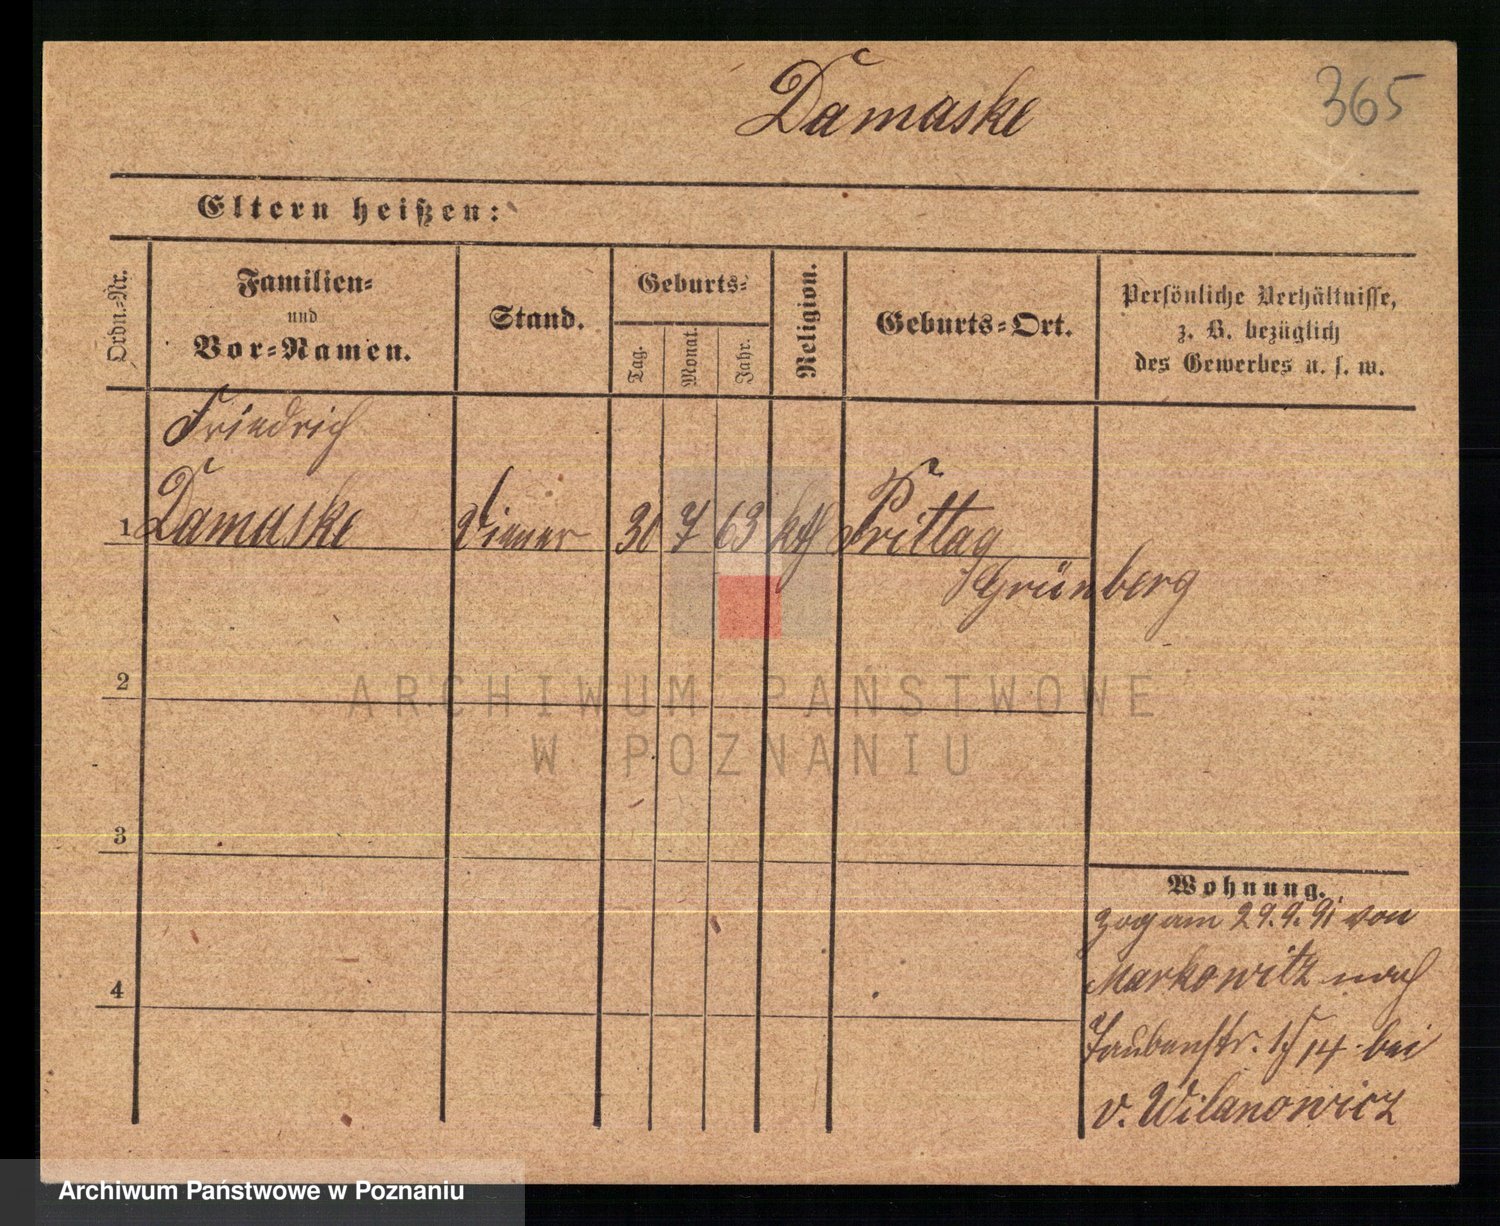 Damaske
365
Eltern heißen:
Ordn.-Nr.
Familien-
und
Vor-Namen.
Stand.
Geburts-
Tag.
Monat.
Jahr.
Religion.
Geburts-Ort.
Persönliche Verhältnisse,
z. B. bezüglich
des Gewerbes u. s. w.
Friedrich
1 Damaske Diener 30 7 63 kth Prittag
Grünberg
2
ARCHIWUM PAŃSTWOWE
W POZNANIU
3
Wohnung.
zog am 29.9.91 von
Markowitz nach
4
Taubenstr. 14 bei
v. Wilanowicz
Archiwum Państwowe w Poznaniu